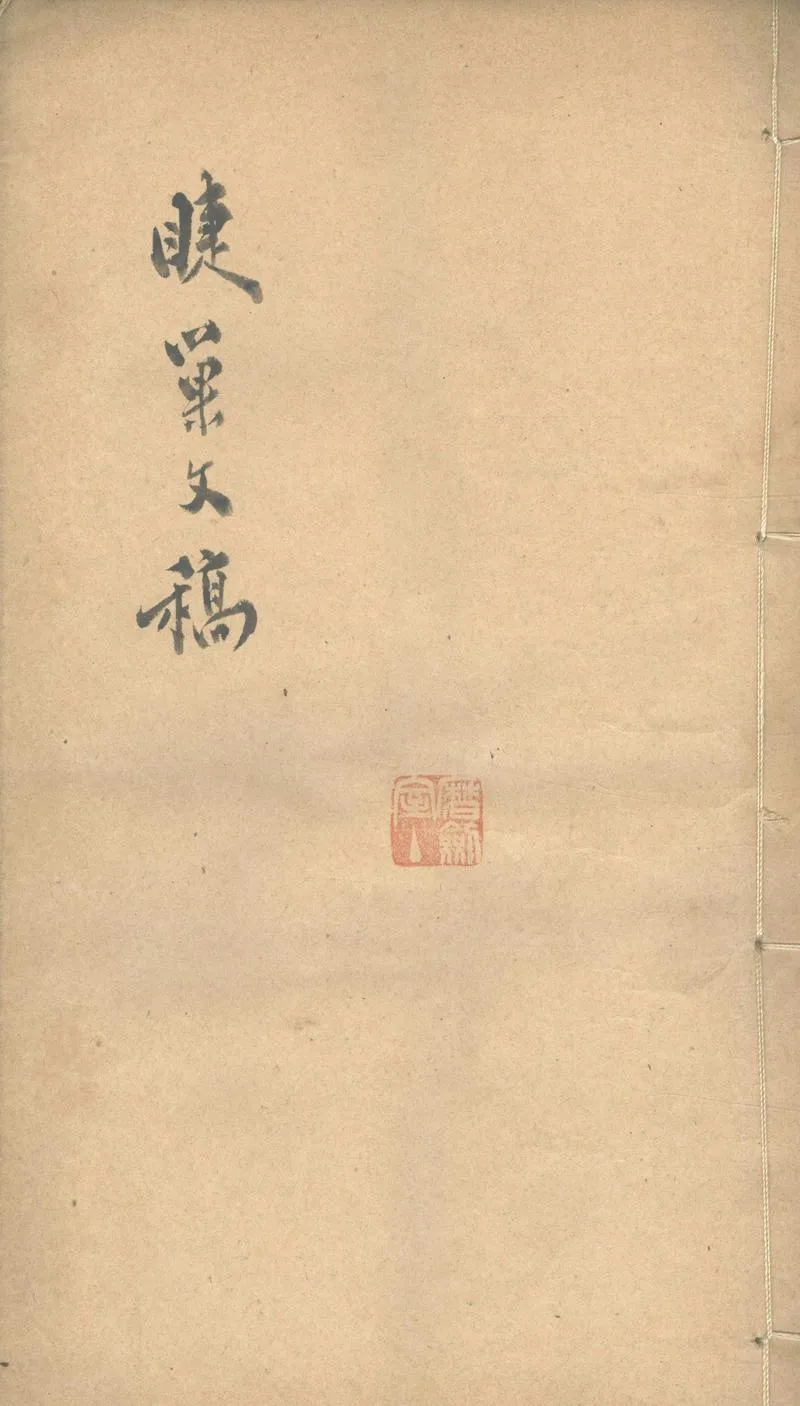 睫巢文稿